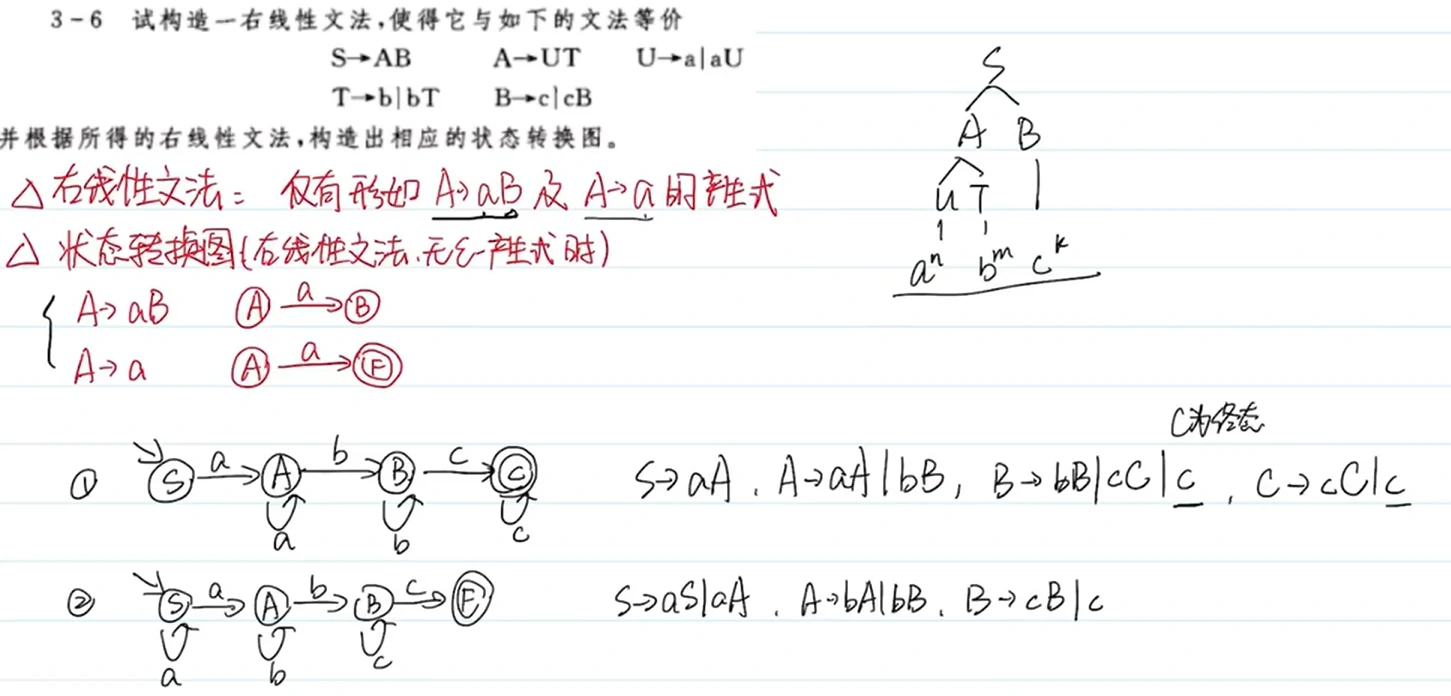 3-6 试构造一右线性文法,使得它与如下的文法等价
S→AB A→UT U→a|aU
T→b|bT B→c|cB
并根据所得的右线性文法,构造出相应的状态转换图。
S
A B
U T
aⁿ bᵐ cᵏ
△ 右线性文法: 仅有形如 A→aB 及 A→a 的产生式
△ 状态转换图(右线性文法、无ε-产生式时)
A→aB A a B
A→a A a F
C为终态
① S a A b B c C S→aA、A→aA|bB, B→bB|cC|c, C→cC|c
a b c
② S a A b B c F S→aS|aA、A→bA|bB、B→cB|c
a b c